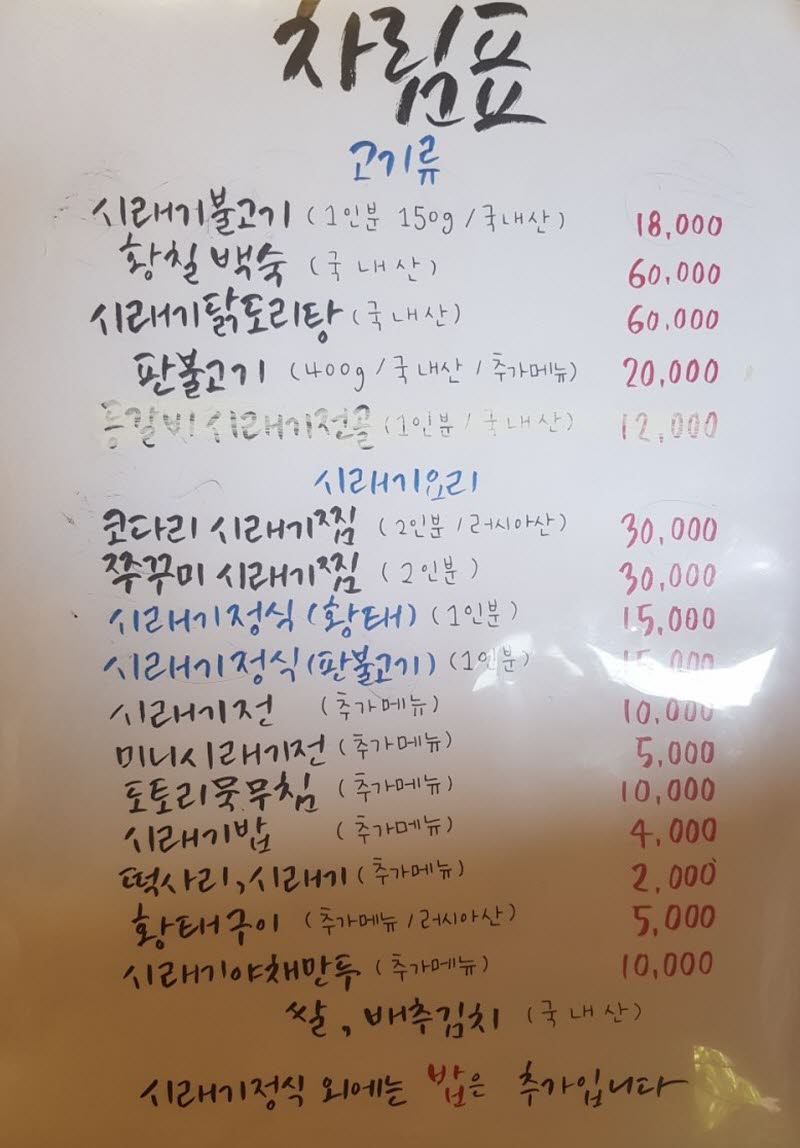 차림표
고기류
시래기불고기 (1인분 150g / 국내산) 18,000
황칠 백숙 (국내산) 60,000
시래기닭도리탕 (국내산) 60,000
판불고기 (400g / 국내산 / 추가메뉴) 20,000
등갈비 시래기전골 (1인분 / 국내산) 12,000
시래기요리
코다리 시래기찜 (2인분 / 러시아산) 30,000
쭈꾸미 시래기찜 (2인분) 30,000
시래기정식 (황태) (1인분) 15,000
시래기정식 (판불고기) (1인분) 15,000
시래기전 (추가메뉴) 10,000
미니시래기전 (추가메뉴) 5,000
도토리묵무침 (추가메뉴) 10,000
시래기밥 (추가메뉴) 4,000
떡사리, 시래기 (추가메뉴) 2,000
황태구이 (추가메뉴 / 러시아산) 5,000
시래기야채만두 (추가메뉴) 10,000
쌀, 배추김치 (국내산)
시래기정식 외에는 밥은 추가입니다